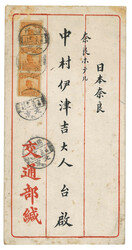 日本奈良
奈良ホテル
中村伊津吉大人 台啟
交通部緘